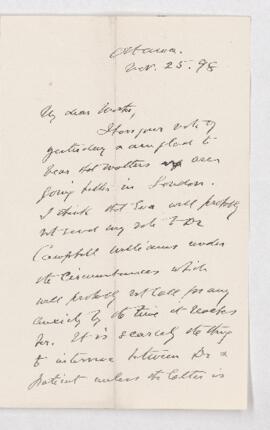 Ottawa.
Nov. 25. 98
My dear Marks,
I have your note of
yesterday & am glad to
hear that matters are
going better in London.
I think that Eva will probably
not send my note to Dr
Campbell Williams under
the circumstances which
will probably not call for any
anxiety by the time it reaches
her. It is scarcely the thing
to intervene between Dr &
patient unless the latter is